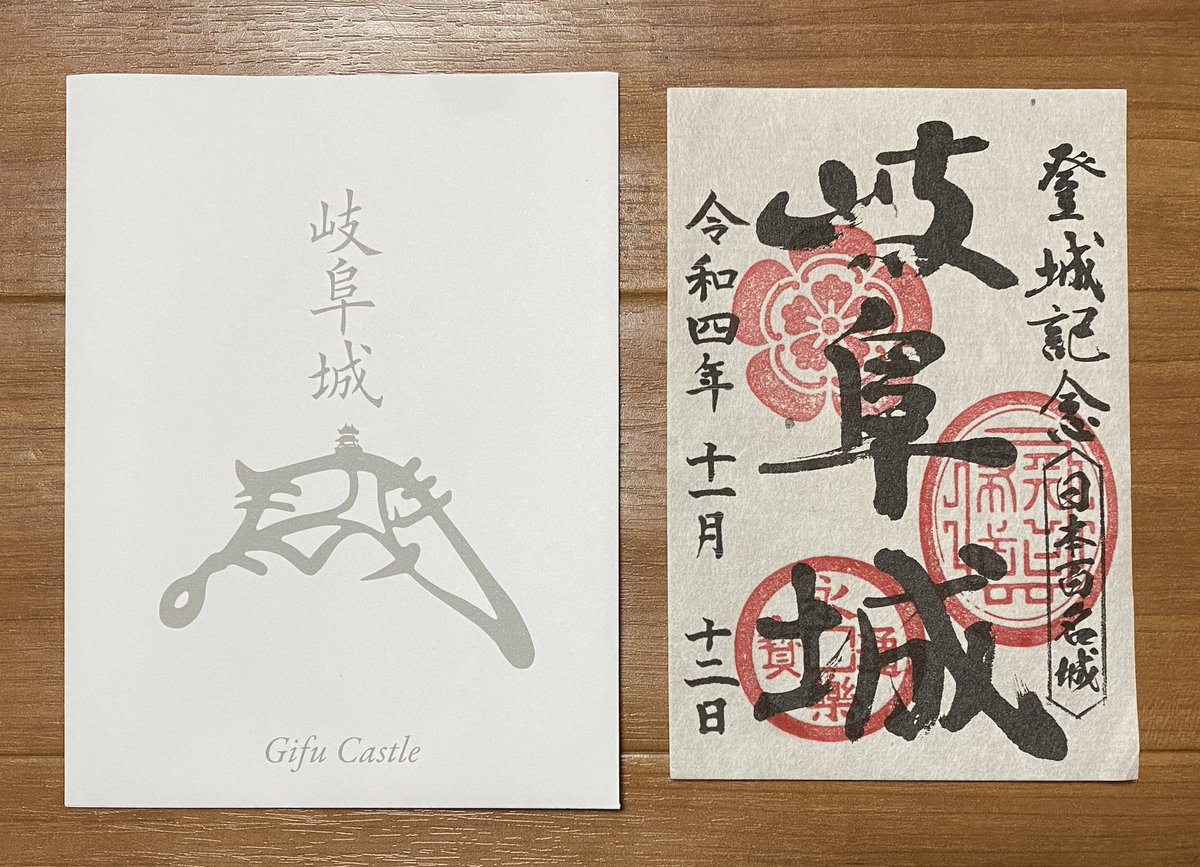 岐阜城
Gifu Castle
登城記念
日本百名城
岐阜城
令和四年 十一月 十二日
永楽通寳